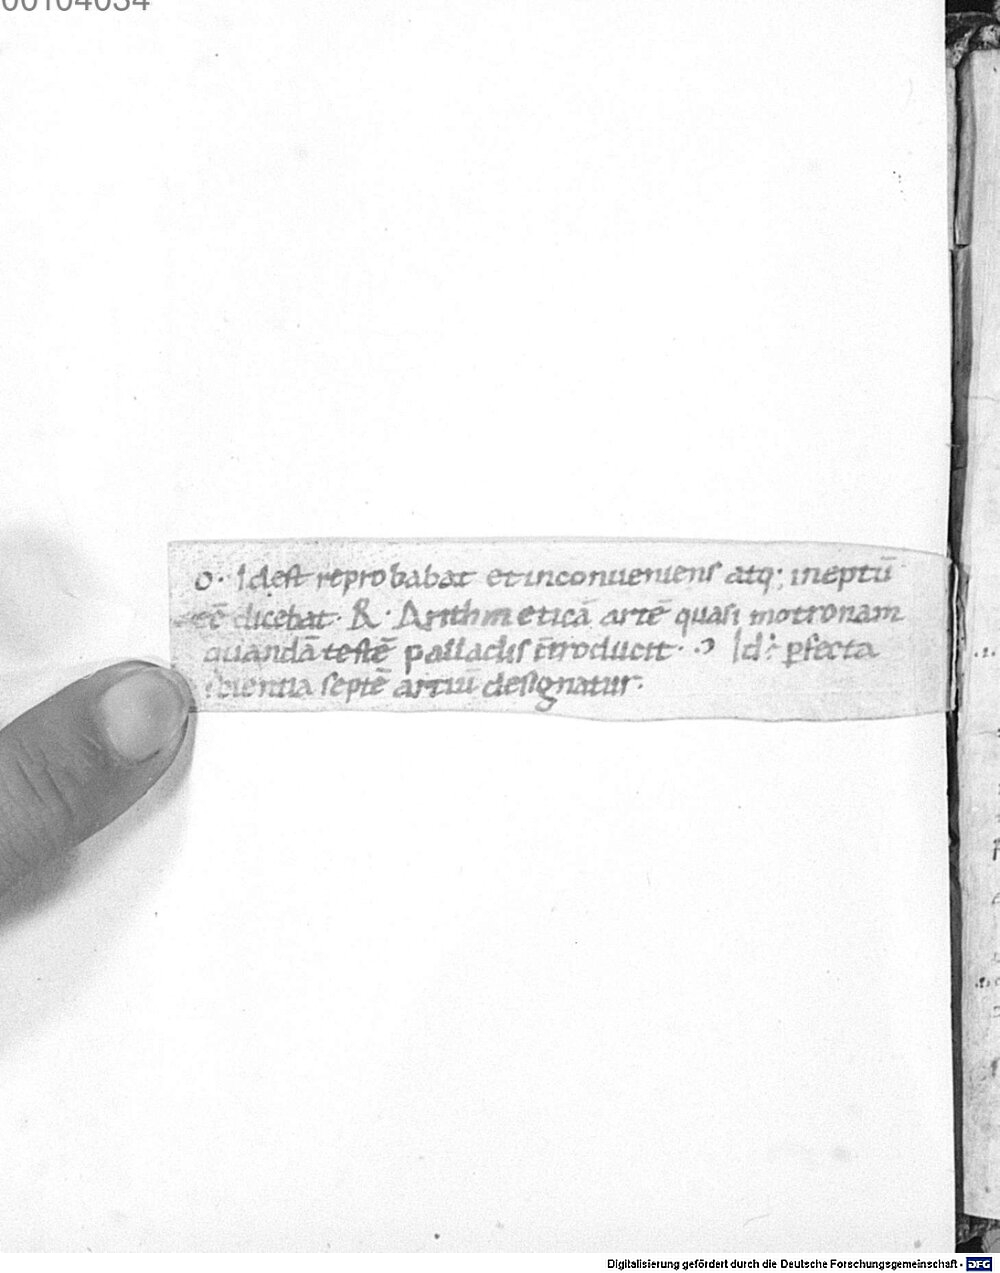 00104034
o· Idest reprobabat et inconueniens atq; ineptū
eē dicebat· R· Arithmeticā artē quasi motronam
quandā testē palladis ītroducit· Id ꝑfecta
scientia septē artiū designatur·
Digitalisierung gefördert durch die Deutsche Forschungsgemeinschaft - DFG